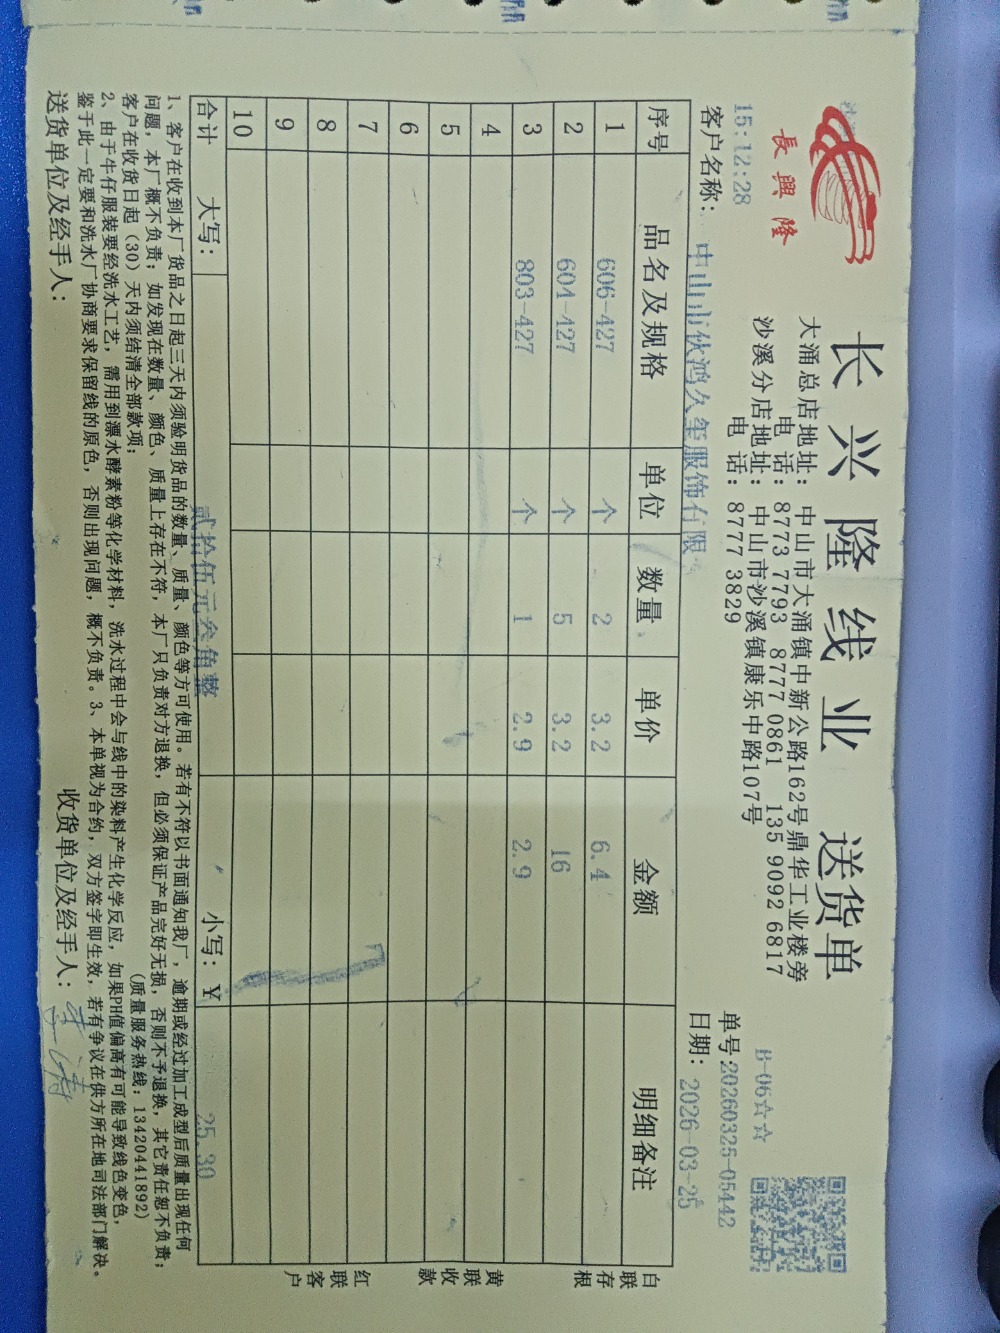 長興隆
长兴隆线业 送货单
大涌总店地址：中山市大涌镇中新公路162号鼎华工业楼旁
电话：8773 7793 8777 0861 135 9092 6817
沙溪分店地址：中山市沙溪镇康乐中路107号
电话：8777 3829
B-06☆☆
15:12:28
单号:20260325-05442
客户名称：中山市伙鸿久玺服饰有限
日期：2026-03-25
序号 品名及规格 单位 数量 单价 金额 明细备注
1 606-427 个 2 3.2 6.4
2 604-427 个 5 3.2 16
3 803-427 个 1 2.9 2.9
4
5
6
7
8
9
10
合计 大写：贰拾伍元叁角整 小写：¥ 25.30
白联存根
黄联收款
红联客户
1、客户在收到本厂货品之日起三天内须验明货品的数量、质量、颜色等方可使用。若有不符以书面通知我厂，逾期或经过加工成型后质量出现任何
问题，本厂概不负责；如发现在数量、颜色、质量上存在不符，本厂只负责对方退换，但必须保证产品完好无损，否则不予退换，其它责任恕不负责；
客户在收货日起（30）天内须结清全部款项；（质量服务热线：13420441892）
2、由于牛仔服装要经洗水工艺，需用到漂水酵素粉等化学材料，洗水过程中会与线中的染料产生化学反应，如果PH值偏高有可能导致线色变色，
鉴于此一定要和洗水厂协商要求保留线的原色，否则出现问题，概不负责。3、本单视为合约，双方签字即生效，若有争议在供方所在地司法部门解决。
送货单位及经手人： 收货单位及经手人：